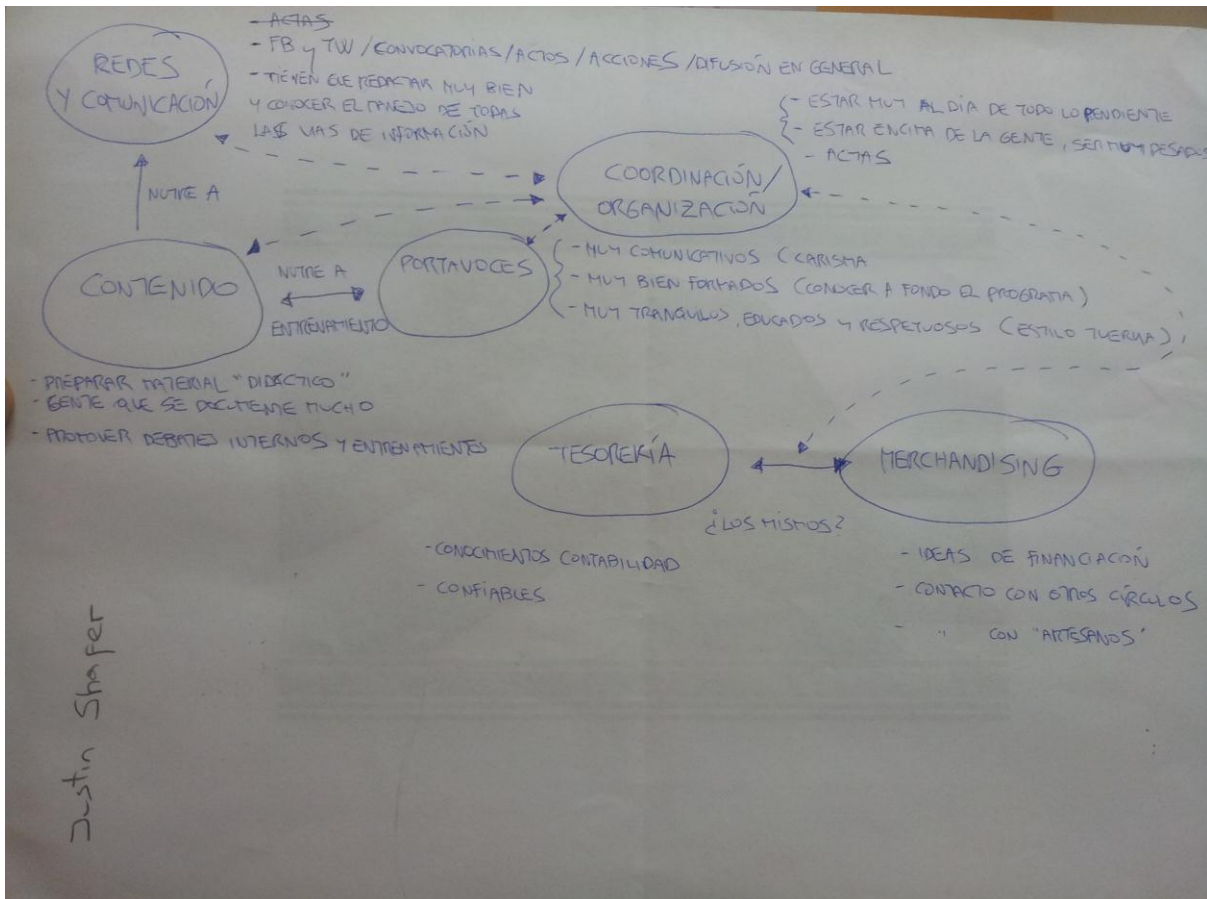 REDES
Y COMUNICACIÓN
- ACTAS
- FB y TW / CONVOCATORIAS / ACTOS / ACCIONES / DIFUSIÓN EN GENERAL
- TIENEN QUE REDACTAR MUY BIEN
Y CONOCER EL MANEJO DE TODAS
LAS VIAS DE INFORMACIÓN
NUTRE A
COORDINACIÓN/
ORGANIZACIÓN
- ESTAR MUY AL DÍA DE TODO LO PENDIENTE
- ESTAR ENCIMA DE LA GENTE, SER MUY PESADOS
- ACTAS
CONTENIDO
NUTRE A
ENTRENAMIENTO
PORTAVOCES
- MUY COMUNICATIVOS (CARISMA
- MUY BIEN FORMADOS (CONOCER A FONDO EL PROGRAMA)
- MUY TRANQUILOS, EDUCADOS Y RESPETUOSOS (ESTILO TUERKA)
- PREPARAR MATERIAL "DIDÁCTICO"
- GENTE QUE SE DOCUMENTE MUCHO
- PROMOVER DEBATES INTERNOS Y ENTRENAMIENTOS
TESORERÍA
MERCHANDISING
¿LOS MISMOS?
- CONOCIMIENTOS CONTABILIDAD
- CONFIABLES
- IDEAS DE FINANCIACIÓN
- CONTACTO CON OTROS CÍRCULOS
- " CON "ARTESANOS"
Justin Shafer